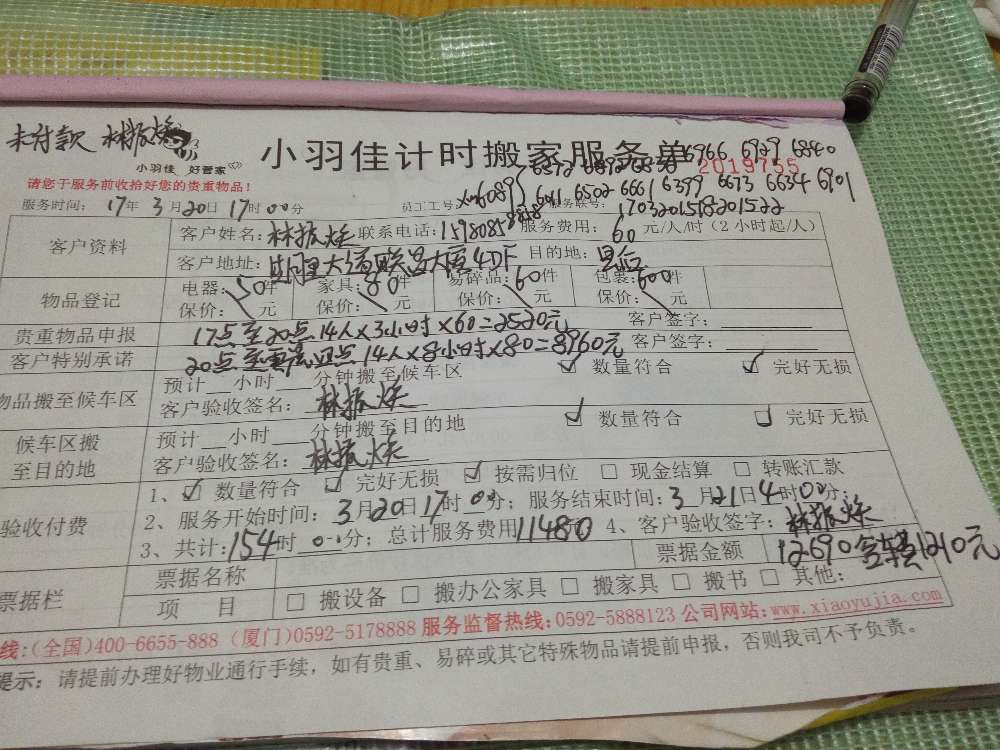 未付款 林振
小羽佳 好管家
小羽佳计时搬家服务单
6966 6929 6840
2019755
请您于服务前收拾好您的贵重物品!
6502 6661 6399 6673 6634 6901
服务时间: 17年 3月20日 17时00分 员工工号: 服务联号: 1703201518201522
客户资料
客户姓名: 林振 联系电话: 1598085 8818 服务费用: 60 元/人/时(2小时起/人)
客户地址: 大道联昌大厦4DF 目的地:
物品登记
电器: 50件 家具: 80件 易碎品: 60件 包装: 600件
保价: 元 保价: 元 保价: 元 保价: 元
贵重物品申报 17点至20点14人×3小时×60=2520元 客户签字:
客户特别承诺 20点至 四点 14人×8小时×80=8960元 客户签字:
物品搬至候车区
预计 小时 分钟搬至候车区 ☑ 数量符合 ☑ 完好无损
客户验收签名: 林振
候车区搬至目的地
预计 小时 分钟搬至目的地 ☑ 数量符合 ☑ 完好无损
客户验收签名: 林振
验收付费
1、☑ 数量符合 ☑ 完好无损 ☑ 按需归位 □ 现金结算 □ 转账汇款
2、服务开始时间: 3月20日17时00分; 服务结束时间: 3月21日4时00分;
3、共计: 154时00分; 总计服务费用11480 4、客户验收签字: 林振
票据栏
票据名称 票据金额 12690 1210元
项 目 □ 搬设备 □ 搬办公家具 □ 搬家具 □ 搬书 □ 其他:
线:(全国)400-6655-888 (厦门)0592-5178888 服务监督热线:0592-5888123 公司网站:www.xiaoyujia.com
提示: 请提前办理好物业通行手续,如有贵重、易碎或其它特殊物品请提前申报,否则我司不予负责。